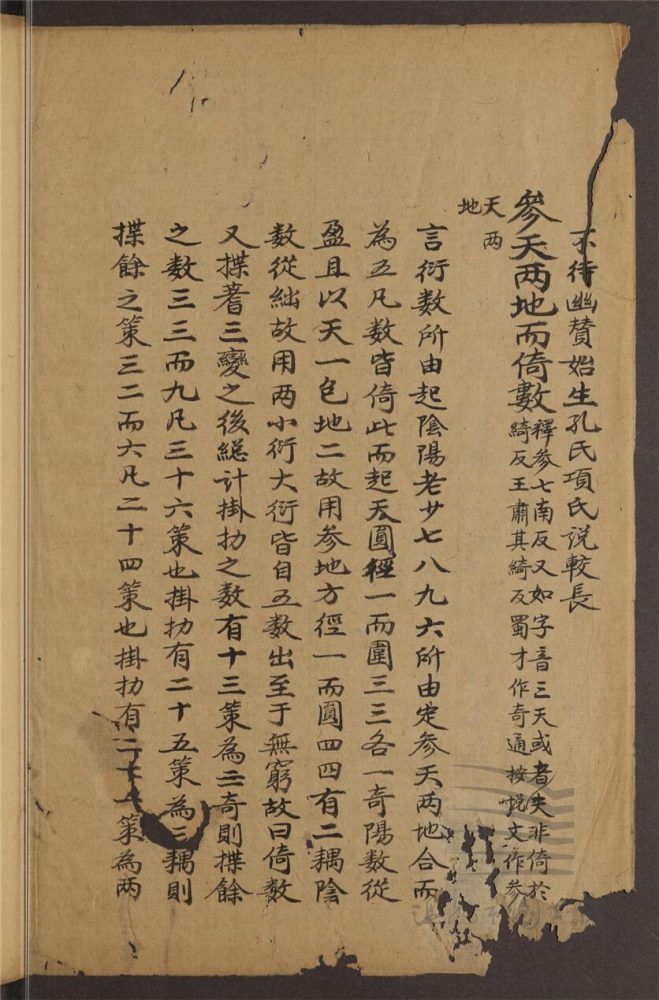 不待幽贊始生孔氏項氏説較長
參天两地而倚數
釋參七南反又如字音三天或者失非倚於
綺反王肅其綺反蜀才作奇通按悦文作参
天两
地
言衍數所由起陰陽老少七八九六所由定参天两地合而
為五凡數皆倚此而起天圓徑一而圍三三各一奇陽數從
盈且以天一包地二故用参地方徑一而圓四四有二耦陰
數從絀故用两小衍大衍皆自五數出至于無窮故曰倚數
又揲蓍三變之後總計掛扐之数有十三策為三奇則揲餘
之数三三而九凡三十六策也掛扐有二十五策為三耦則
揲餘之策三二而六凡二十四策也掛扐有二十一策為两